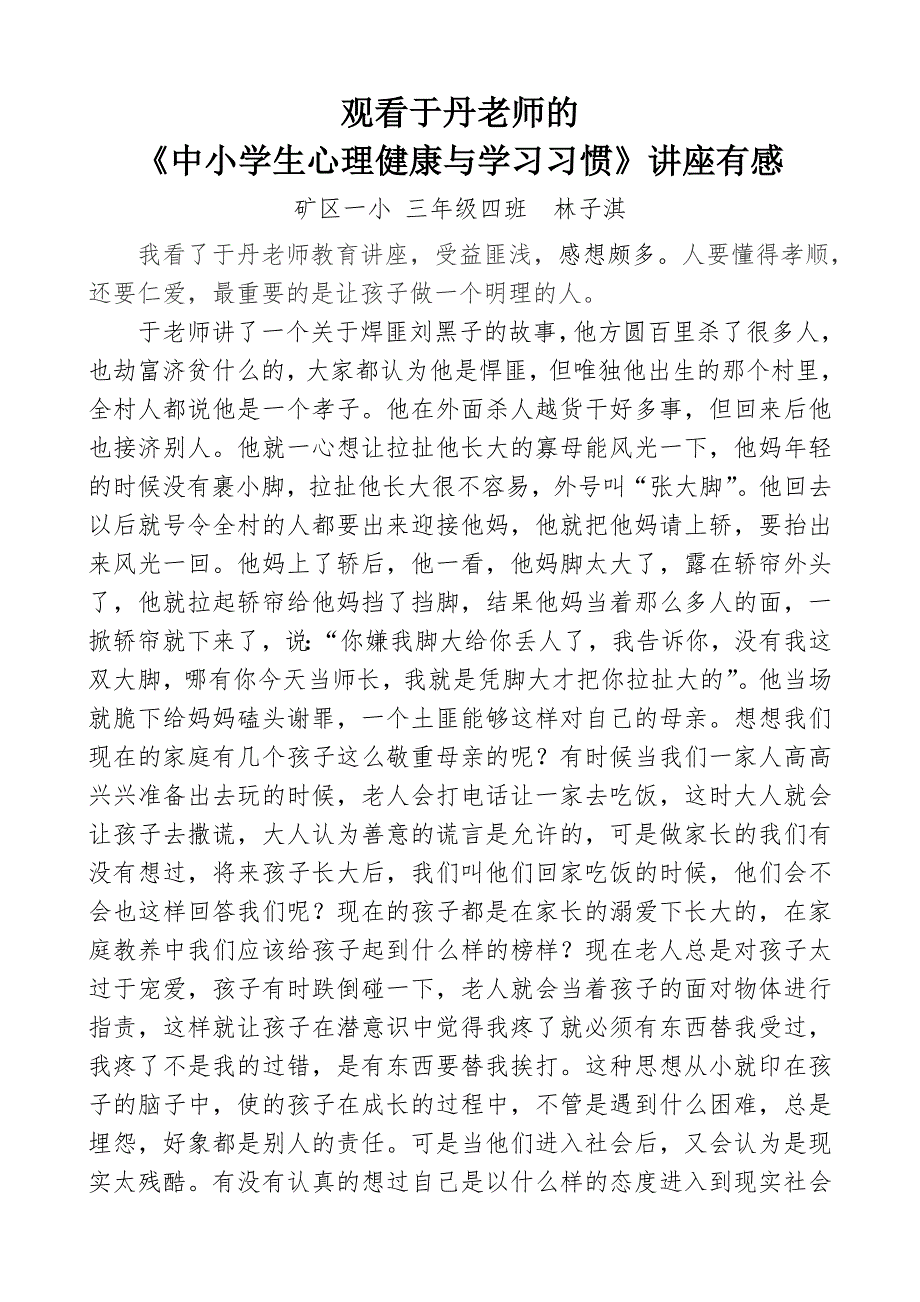 观看于丹老师的
《中小学生心理健康与学习习惯》讲座有感
矿区一小 三年级四班 林子淇
我看了于丹老师教育讲座，受益匪浅，感想颇多。人要懂得孝顺，
还要仁爱，最重要的是让孩子做一个明理的人。
于老师讲了一个关于焊匪刘黑子的故事，他方圆百里杀了很多人，
也劫富济贫什么的，大家都认为他是悍匪，但唯独他出生的那个村里，
全村人都说他是一个孝子。他在外面杀人越货干好多事，但回来后他
也接济别人。他就一心想让拉扯他长大的寡母能风光一下，他妈年轻
的时候没有裹小脚，拉扯他长大很不容易，外号叫“张大脚”。他回去
以后就号令全村的人都要出来迎接他妈，他就把他妈请上轿，要抬出
来风光一回。他妈上了轿后，他一看，他妈脚太大了，露在轿帘外头
了，他就拉起轿帘给他妈挡了挡脚，结果他妈当着那么多人的面，一
掀轿帘就下来了，说：“你嫌我脚大给你丢人了，我告诉你，没有我这
双大脚，哪有你今天当师长，我就是凭脚大才把你拉扯大的”。他当场
就脆下给妈妈磕头谢罪，一个土匪能够这样对自己的母亲。想想我们
现在的家庭有几个孩子这么敬重母亲的呢？有时候当我们一家人高高
兴兴准备出去玩的时候，老人会打电话让一家去吃饭，这时大人就会
让孩子去撒谎，大人认为善意的谎言是允许的，可是做家长的我们有
没有想过，将来孩子长大后，我们叫他们回家吃饭的时候，他们会不
会也这样回答我们呢？现在的孩子都是在家长的溺爱下长大的，在家
庭教养中我们应该给孩子起到什么样的榜样？现在老人总是对孩子太
过于宠爱，孩子有时跌倒碰一下，老人就会当着孩子的面对物体进行
指责，这样就让孩子在潜意识中觉得我疼了就必须有东西替我受过，
我疼了不是我的过错，是有东西要替我挨打。这种思想从小就印在孩
子的脑子中，使的孩子在成长的过程中，不管是遇到什么困难，总是
埋怨，好象都是别人的责任。可是当他们进入社会后，又会认为是现
实太残酷。有没有认真的想过自己是以什么样的态度进入到现实社会